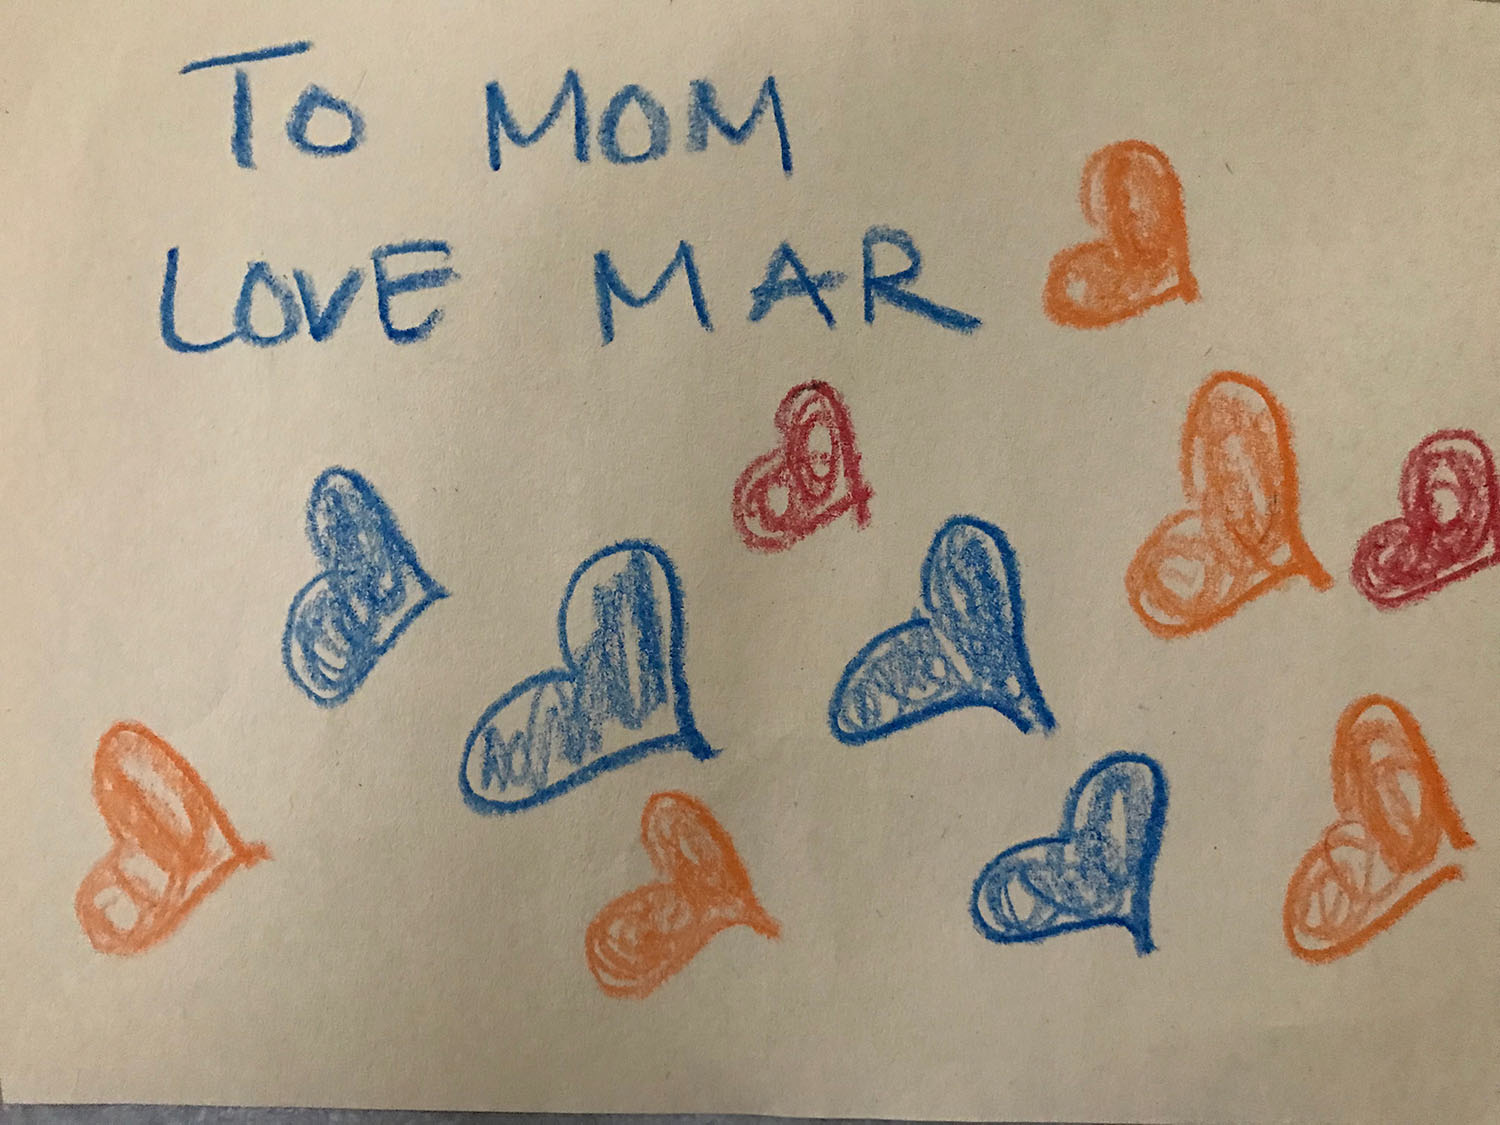 TO MOM
LOVE MAR